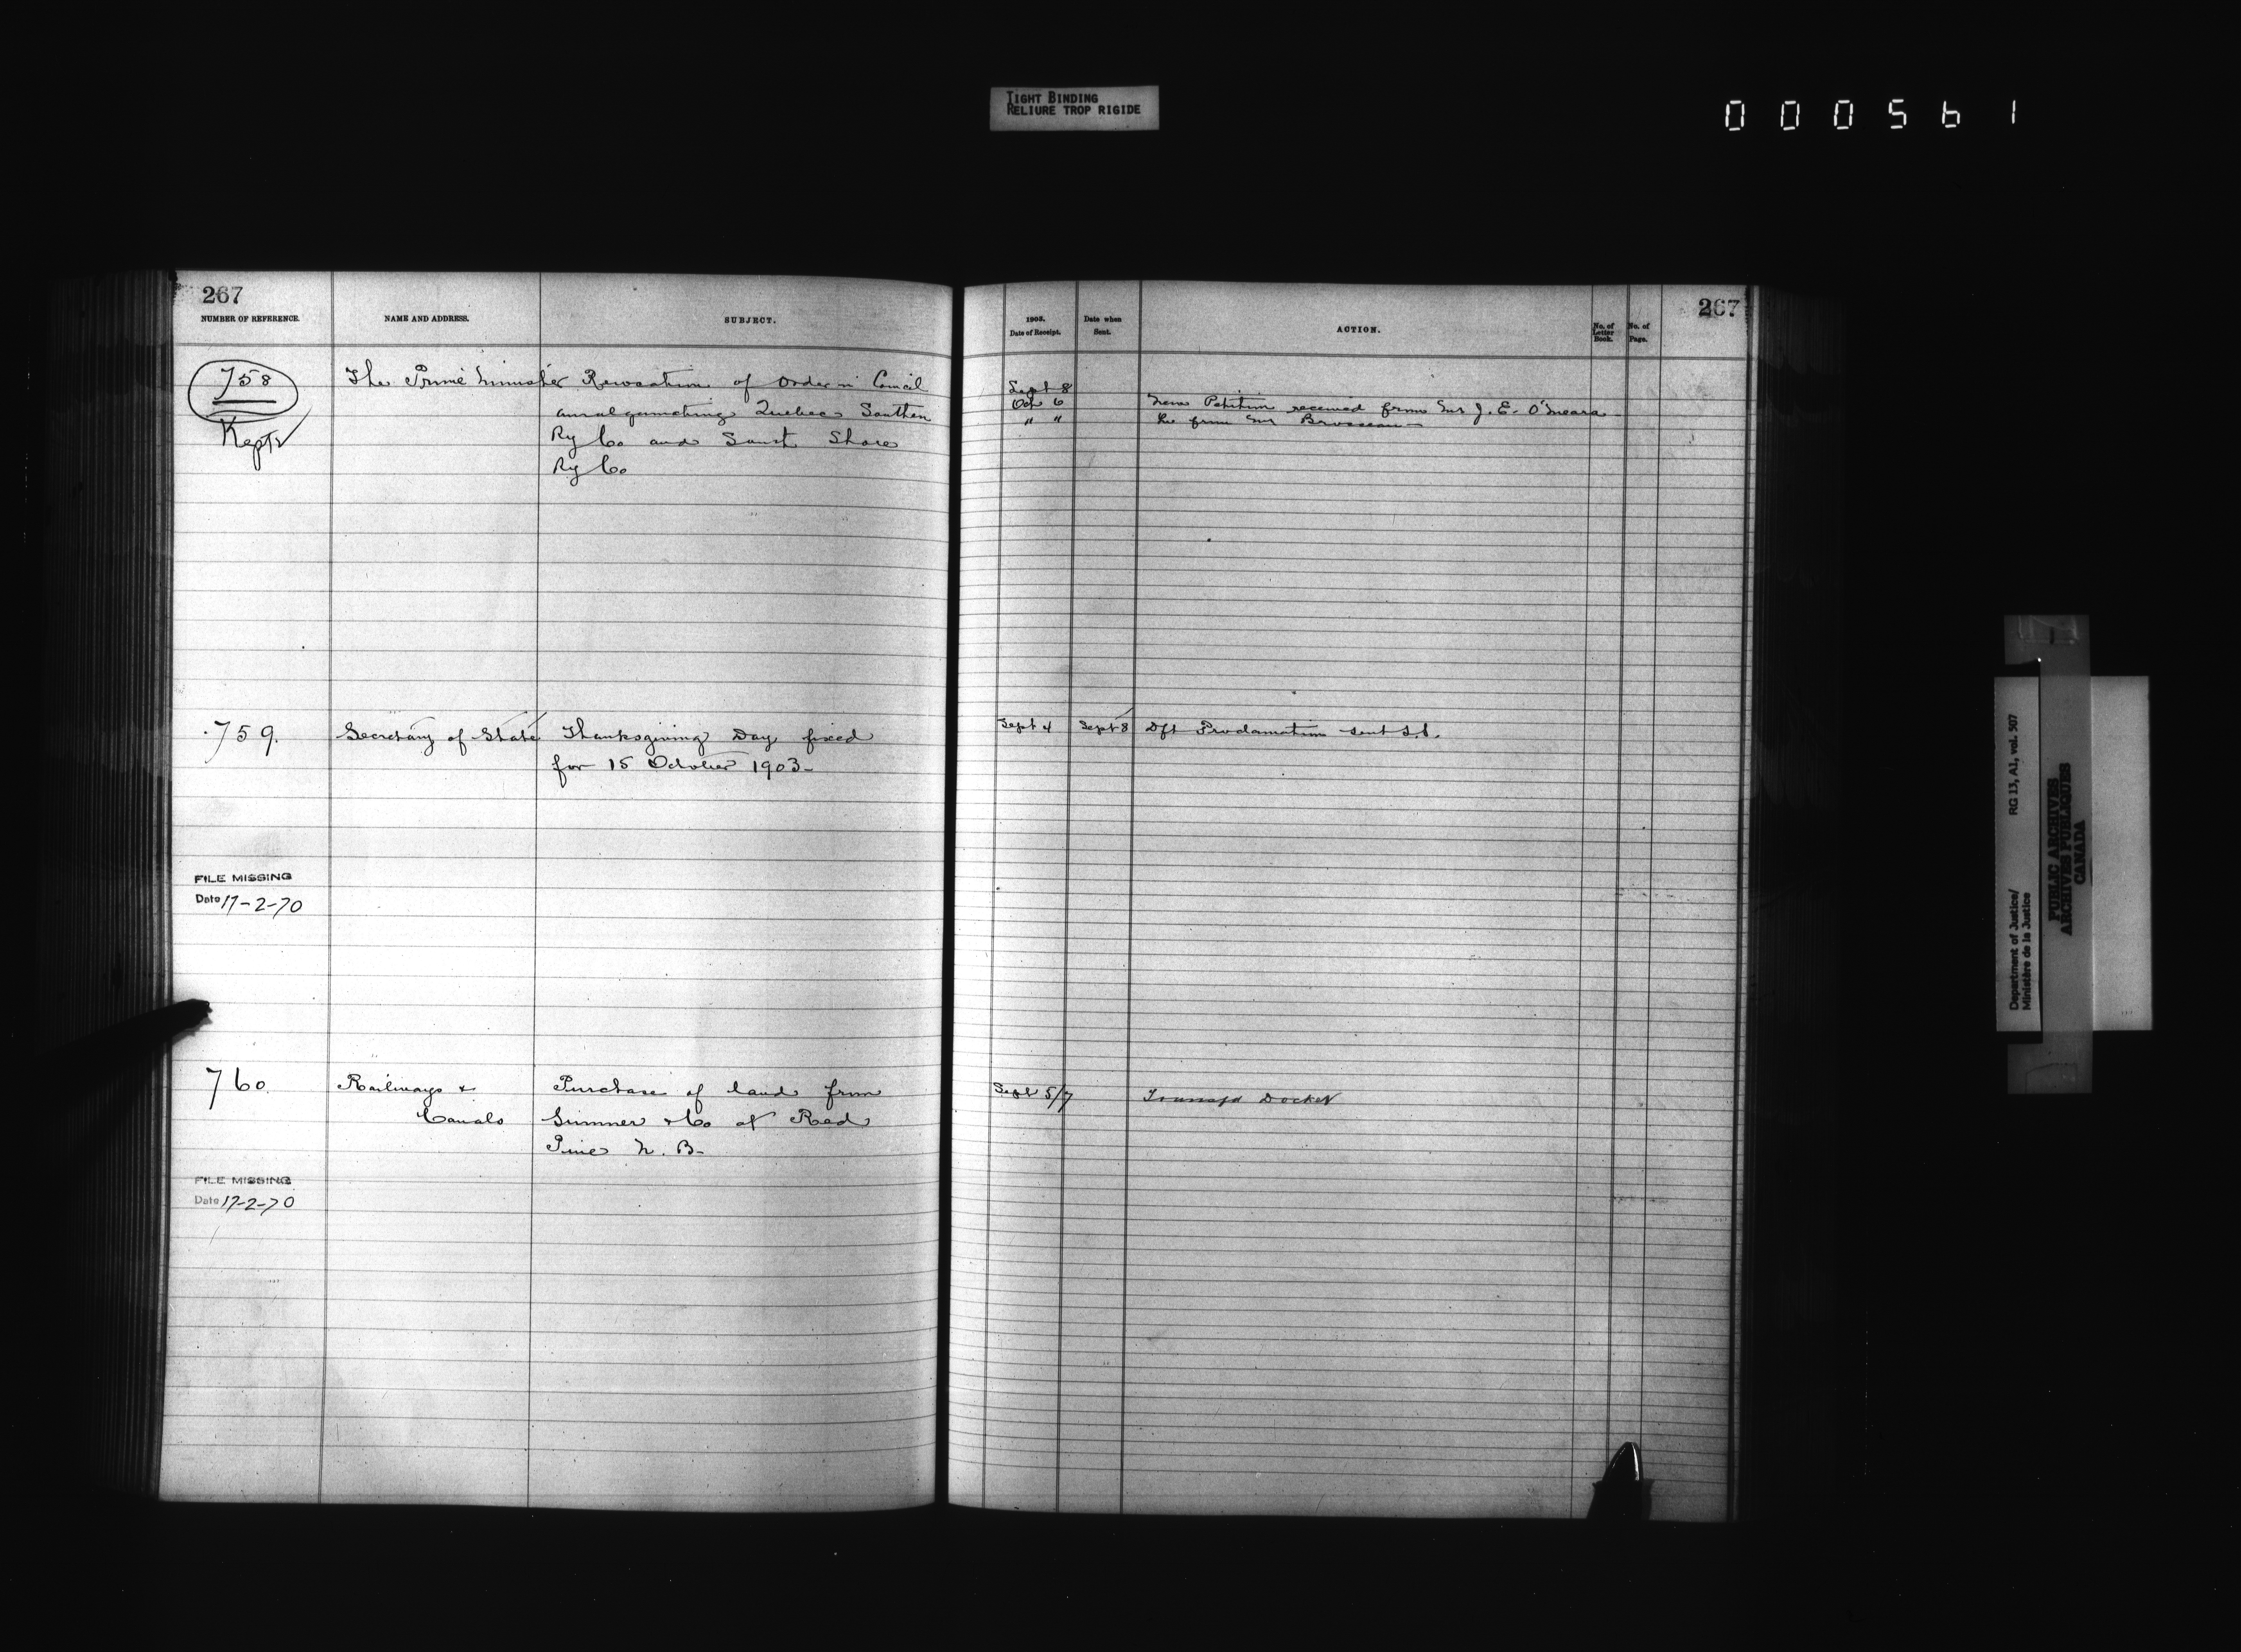 TIGHT BINDING
RELIURE TROP RIGIDE
000561
267
NUMBER OF REFERENCE.
NAME AND ADDRESS.
SUBJECT.
758
Kept
The Prime Minister
Revocation of Order in Council
amalgamating Quebec Southern
Ry Co and South Shore
Ry Co
759.
Secretary of State
Thanksgiving Day fixed
for 15 October 1903-
FILE MISSING
Date 17-2-70
760.
Railways &
Canals
Purchase of land from
Sumner & Co at Red
Pine N. B-
FILE MISSING
Date 17-2-70
267
1903.
Date of Receipt.
Date when
Sent.
ACTION.
No. of
Letter
Book.
No. of
Page.
Sept 8
Oct 6
New Petition received from Mr J. E. O'Meara
" "
from Mr Brosseau
Sept 4
Sept 8
Dft Proclamation sent
Sept 5/7
Transfd Docket
Department of Justice/
Ministère de la Justice
RG 13, A1, vol. 507
PUBLIC ARCHIVES
ARCHIVES PUBLIQUES
CANADA